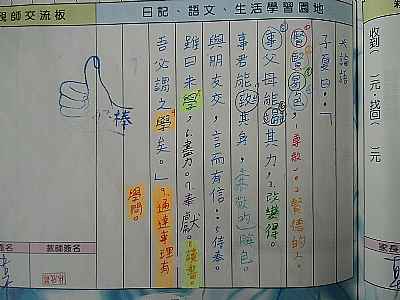 親師交流板
日記、語文、生活學習園地
大論語
子夏曰：「
賢賢易色，1.尊敬。2.賢德的人。
事父母能竭其力，3.改變得。
事君能致其身，
與朋友交，言而有信。5.侍奉。
雖曰未學，6.盡力。7.奉獻。8.讀書。
吾必謂之學矣。」9.通達事理有
學問。
棒
收到 元，找回 元
教師簽名